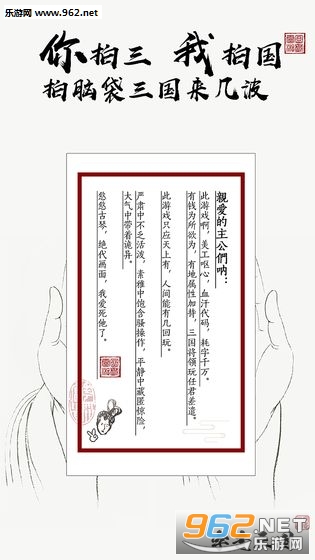 乐游网 www.962.net
你拍三 我拍国
拍脑袋三国来几波
親愛的主公們呐：
此游戏啊，美工呕心，血汗代码，耗字千万。
有钱为所欲为，有地属性加持，三国将领玩任君差遣。
此游戏只应天上有，人间能有几回玩。
严肃中不乏活泼，素雅中饱含骚操作，平静中藏匿惊险，
大气中带着诡异。
悠悠古琴，绝代画面，我爱死他了。
962.NET
乐游网